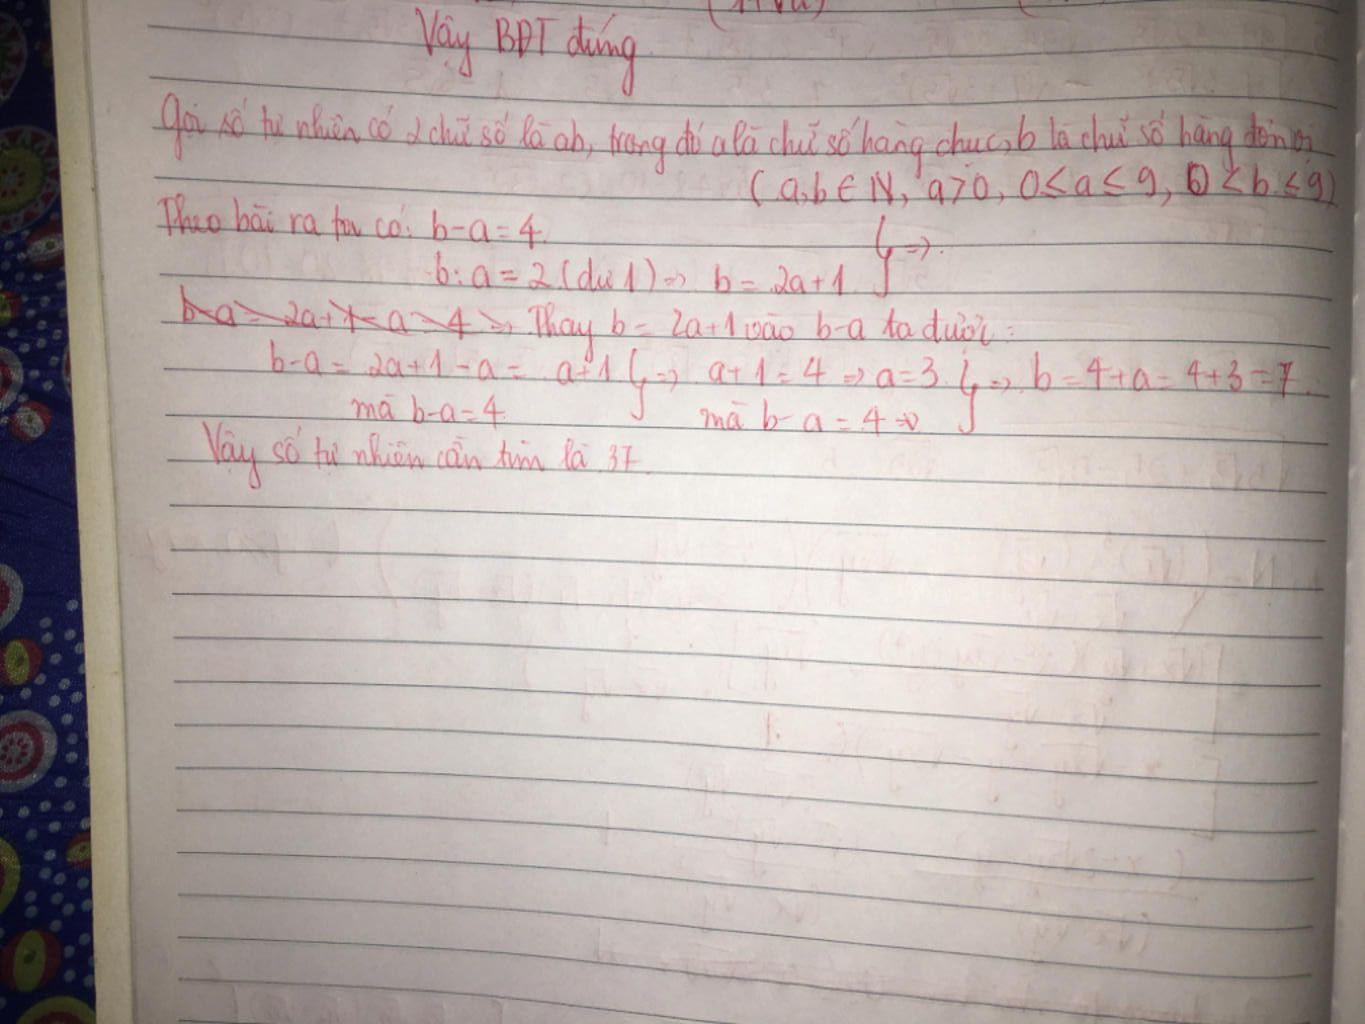 Vậy BĐT đúng
Gọi số tự nhiên có 2 chữ số là ab, trong đó a là chữ số hàng chục, b là chữ số hàng đơn vị
(a,b ∈ N, a>0, 0≤a≤9, 0<b≤9)
Theo bài ra ta có: b-a=4.
b:a=2(dư 1)=> b=2a+1 } =>.
b-a=2a+1-a=4 => Thay b=2a+1 vào b-a ta được:
b-a=2a+1-a=a+1 } => a+1=4 => a=3. } => b=4+a=4+3=7.
mà b-a=4. mà b-a=4 =>
Vậy số tự nhiên cần tìm là 37